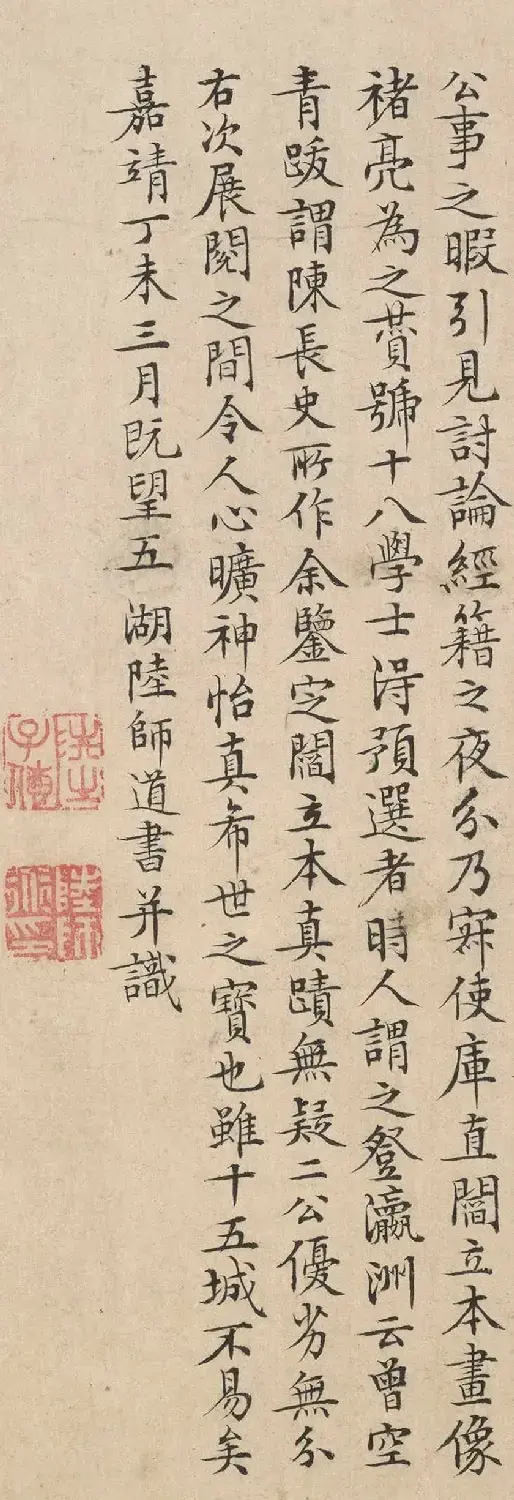 公事之暇引見討論經籍之夜分乃寐使庫直閻立本畫像
褚亮為之賛號十八學士得預選者時人謂之登瀛洲云曾空
青跋謂陳長史所作余鑒定閻立本真蹟無疑二公優劣無分
右次展閱之間令人心曠神怡真希世之寶也雖十五城不易矣
嘉靖丁未三月既望五湖陸師道書并識